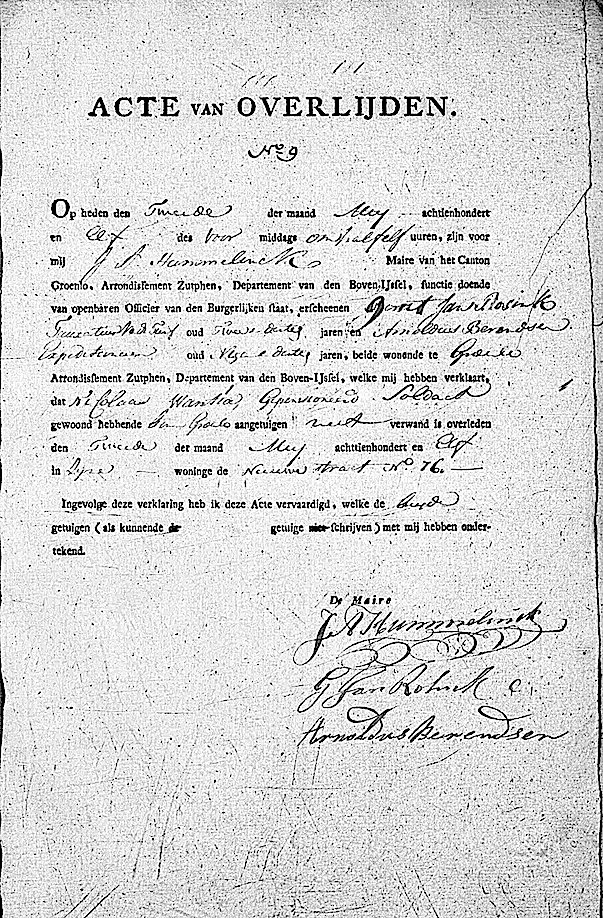 ACTE VAN OVERLIJDEN.
No 9
Op heden den Tweede der maand Meij achttienhondert
en Elf des voor middags om half elf uuren, zijn voor
mij J A Hummelinck Maire van het Canton
Groenlo, Arrondissement Zutphen, Departement van den Boven-IJssel, functie doende
van openbaren Officier van den Burgerlijken staat, erscheenen Gerrit Jan
oud jaren en Arnoldus Berendsen
oud jaren, beide wonende te Groenlo
Arrondissement Zutphen, Departement van den Boven-IJssel, welke mij hebben verklaart,
dat Nicolaas Gepensioneerd Soldaat
gewoond hebbende aangetuigen niet verwand is overleden
den Tweede der maand Meij achttienhondert en Elf
in Zijne woninge de Nieuwe straat No 76.
Ingevolge deze verklaring heb ik deze Acte vervaardigd, welke de beyde
getuigen (als kunnende de getuige niet schrijven) met mij hebben onder-
tekend.
De Maire
J A Hummelinck
G Jan
Arnoldus Berendsen